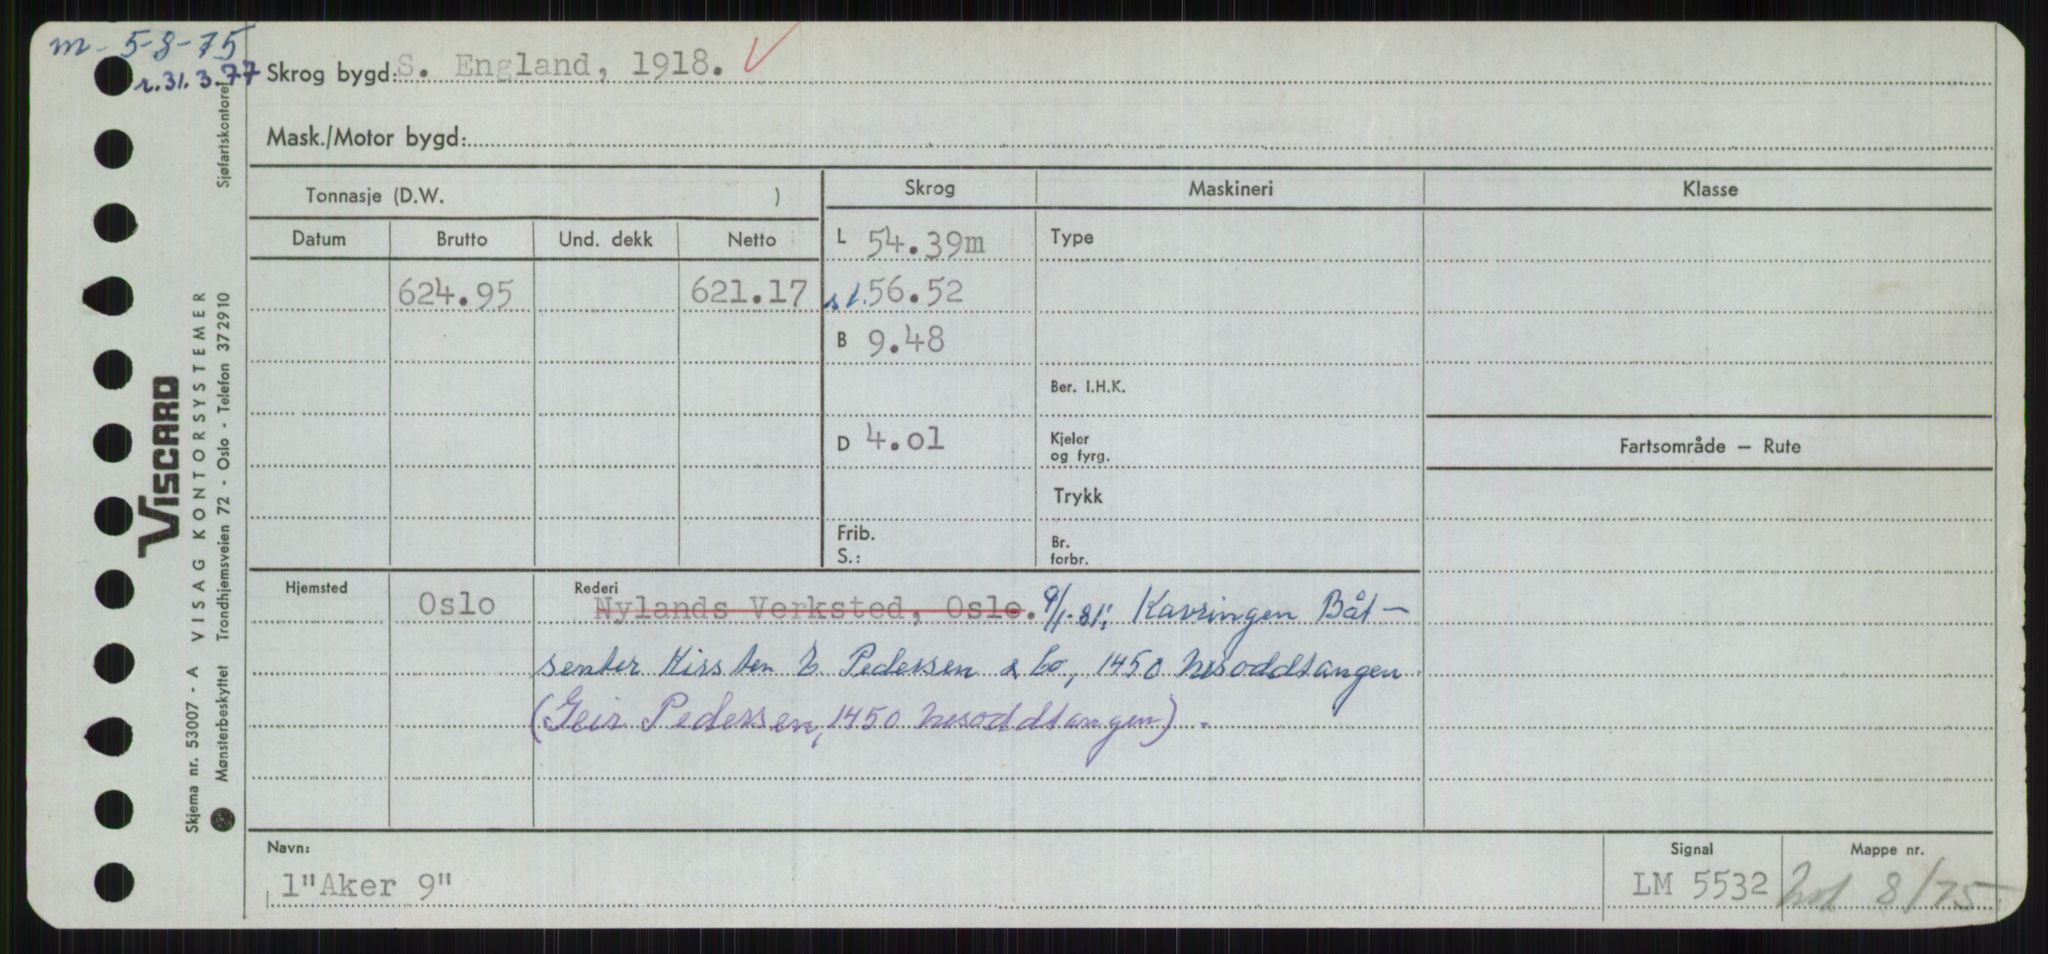 m- 5-8-75
r. 31.3.77
Skrog bygd: S. England, 1918. ✓
Mask./Motor bygd:
Tonnasje (D.W. )
Skrog
Maskineri
Klasse
Datum Brutto Und. dekk Netto
L 54.39m
Type
624.95 621.17
s l. 56.52
B 9.48
Ber. I.H.K.
D 4.01
Kjeler
og fyrg.
Fartsområde — Rute
Trykk
Frib.
S.:
Br.
forbr.
Hjemsted Oslo
Rederi Nylands Verksted, Oslo. 9/1-81: Kavringen Båt-
senter Kirsten E. Pedersen & Co, 1450 Nesoddtangen
(Geir Pedersen, 1450 Nesoddtangen).
Navn:
1"Aker 9"
Signal
LM 5532
Mappe nr.
8/75
VISCARD
Skjema nr. 53007 - A VISAG KONTORSYSTEMER
Mønsterbeskyttet Trondhjemsveien 72 - Oslo - Telefon 372910
Sjøfartskontoret